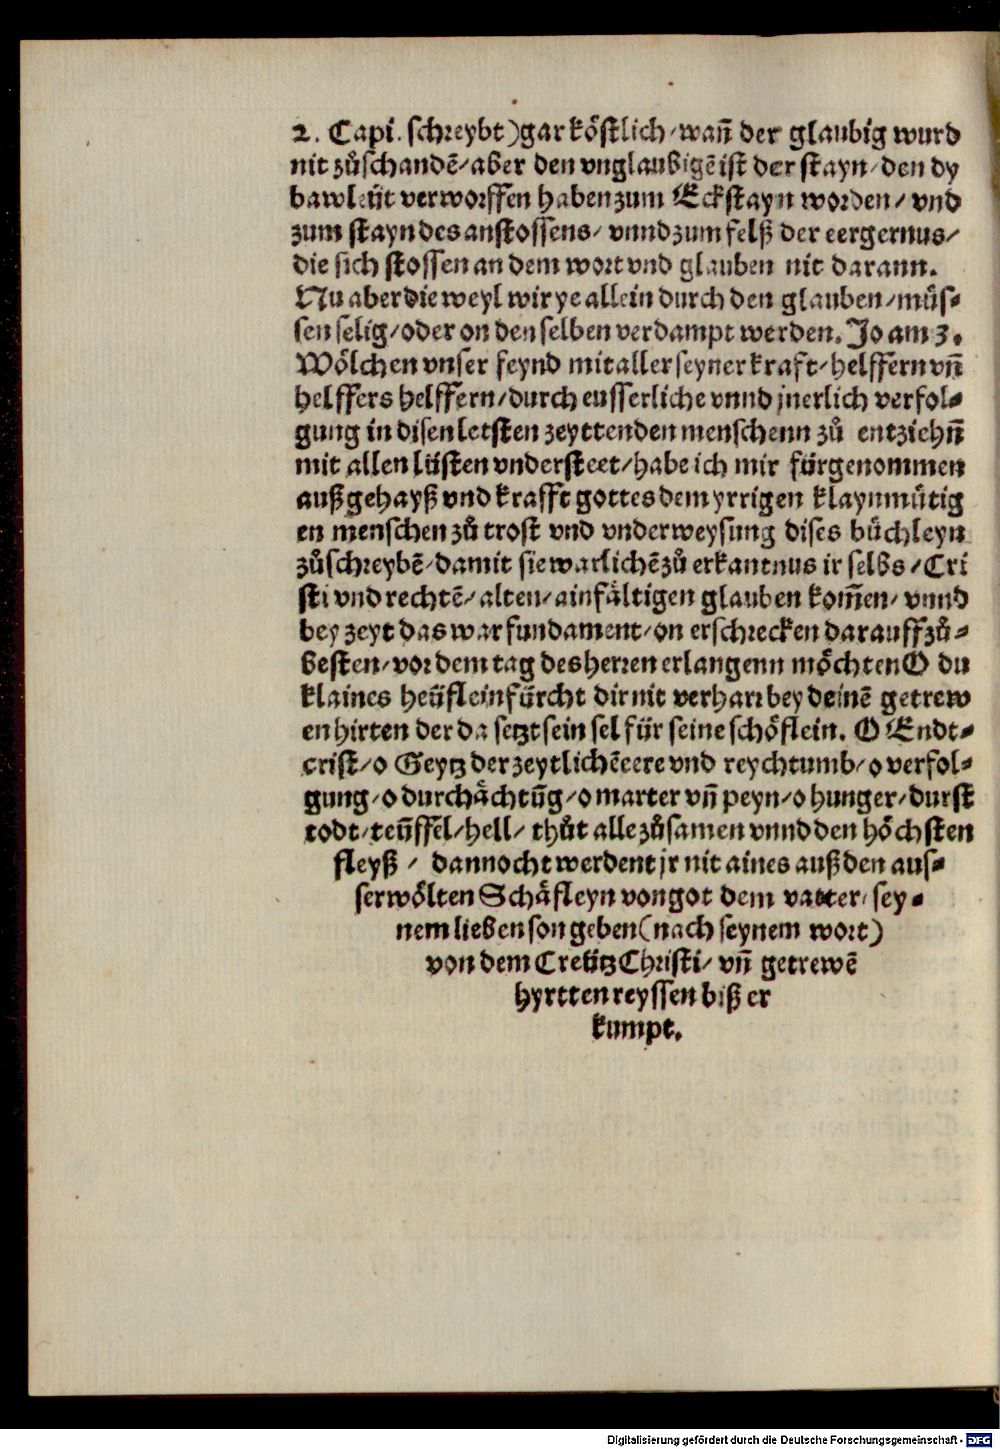 2. Capi. schreybt) gar köstlich / wañ der glaubig wurd
nit zůschandē / aber den vnglaubigē ist der stayn / den dy
bawleüt verworffen haben zum Eckstayn worden / vnd
zum stayn des anstossens / vnnd zum felß der eergernus /
die sich stossen an dem wort vnd glauben nit darann.
Nu aber die weyl wir ye allein durch den glauben / müs-
sen selig / oder on den selben verdampt werden. Jo am 3.
Wölchen vnser feynd mit aller seyner kraft / helffern vñ
helffers helffern / durch eusserliche vnnd jnerlich verfol-
gung in disen letsten zeytten den menschenn zů entziehñ
mit allen lüsten vndersteet / habe ich mir fürgenommen
auß gehayß vnd krafft gottes dem yrrigen klaynmütig
en menschen zů trost vnd vnderweysung dises büchleyn
zůschreybē / damit sie warlichē zů erkantnus ir selbs / Cri
sti vnd rechtē / alten / ainfältigen glauben kom̃en / vnnd
bey zeyt das war fundament / on erschrecken darauff zů-
besten / vor dem tag des herren erlangenn möchten O du
klaines heüflein fürcht dir nit verharr bey deinē getrew
en hirten der da setzt sein sel für seine schöflein. O Endt-
crist / o Geytz der zeytlichē eere vnd reychtumb / o verfol-
gung / o durchächtũg / o marter vñ peyn / o hunger / durst
todt / teüffel / hell / thůt alle zůsamen vnnd den höchsten
fleyß / dannocht werdent jr nit aines auß den aus-
serwölten Schäfleyn von got dem vatter / sey-
nem lieben son geben (nach seynem wort)
von dem Creütz Christi / vñ getrewē
hyrtten reyssen biß er
kumpt.
Digitalisierung gefördert durch die Deutsche Forschungsgemeinschaft - DFG